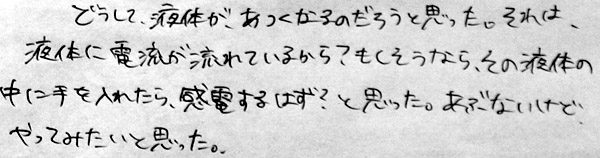 どうして、液体が、あつくなるのだろうと思った。それは、
液体に電流が流れているから？もしそうなら、その液体の
中に手を入れたら、感電するはず？と思った。あぶないけど、
やってみたいと思った。